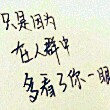 只是因为
在人群中
多看了你一眼